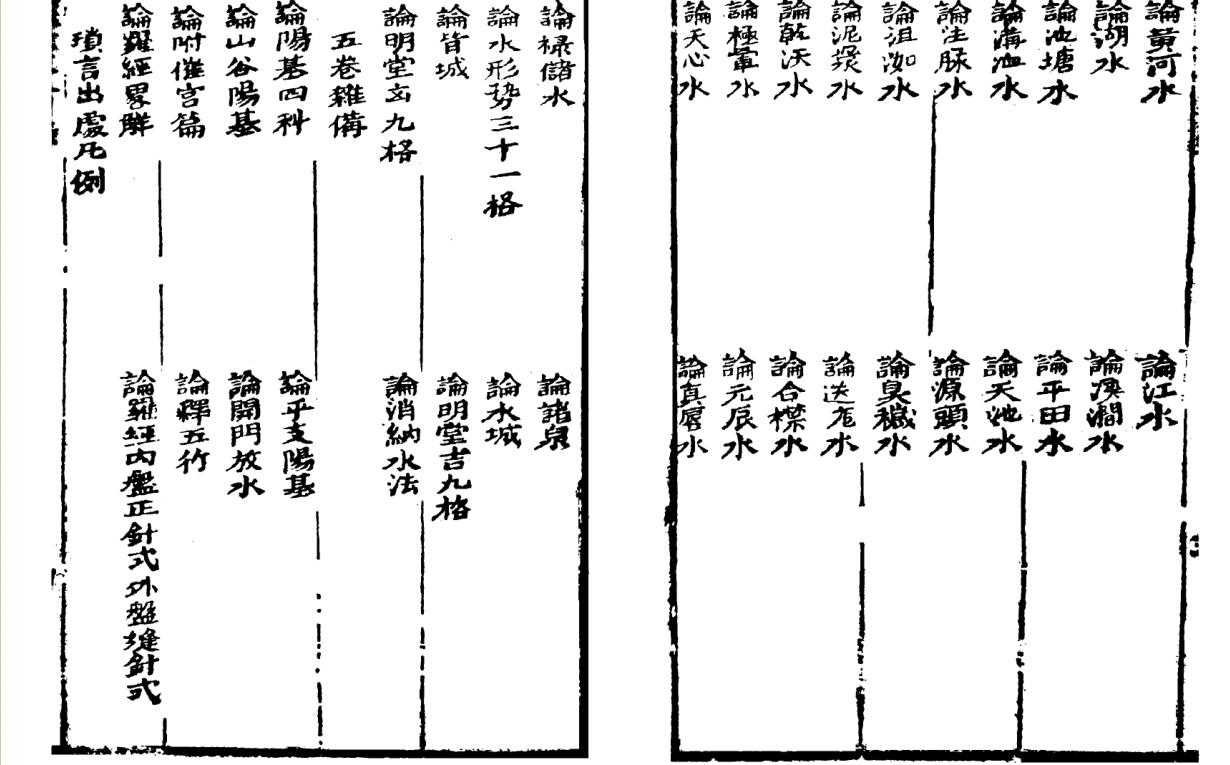 論黃河水
論江水
論湖水
論溪澗水
論池塘水
論平田水
論溝洫水
論天池水
論注脉水
論源頭水
論沮洳水
論臭穢水
論泥漿水
論送龙水
論乾沃水
論合襟水
論極暈水
論元辰水
論天心水
論真唇水
論祿儲水
論諸泉
論水形势三十一格
論水城
論皆城
論明堂吉九格
論明堂玄九格
論消納水法
五卷雜俻
論陽基四科
論平支陽基
論山谷陽基
論開門放水
論附催官篇
論釋五行
論羅經畧觧
論羅經內盤正針式外盤縫針式
瑣言出處凡例